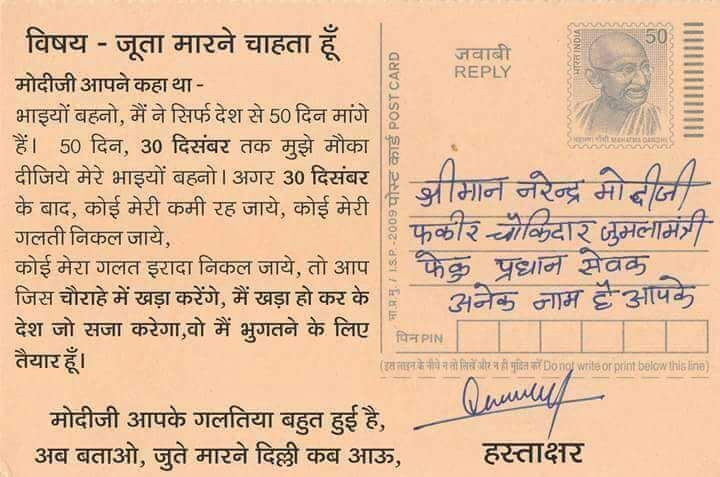 विषय - जूता मारने चाहता हूँ
मोदीजी आपने कहा था -
भाइयों बहनो, मैं ने सिर्फ देश से 50 दिन मांगे
हैं। 50 दिन, 30 दिसंबर तक मुझे मौका
दीजिये मेरे भाइयों बहनो। अगर 30 दिसंबर
के बाद, कोई मेरी कमी रह जाये, कोई मेरी
गलती निकल जाये,
कोई मेरा गलत इरादा निकल जाये, तो आप
जिस चौराहे में खड़ा करेंगे, मैं खड़ा हो कर के
देश जो सजा करेगा,वो मैं भुगतने के लिए
तैयार हूँ।
मोदीजी आपके गलतिया बहुत हुई है,
अब बताओ, जुते मारने दिल्ली कब आऊ,
भा.प्र.मु. / I.S.P.-2009 पोस्ट कार्ड POST CARD
जवाबी
REPLY
भारत INDIA
50
महात्मा गाँधी MAHATMA GANDHI
श्रीमान नरेन्द्र मोदीजी
फकीर चौकिदार जुमलामंत्री
फेकु प्रधान सेवक
अनेक नाम है आपके
पिन PIN
(इस लाइन के नीचे न तो लिखें और न ही मुद्रित करें Do not write or print below this line)
हस्ताक्षर